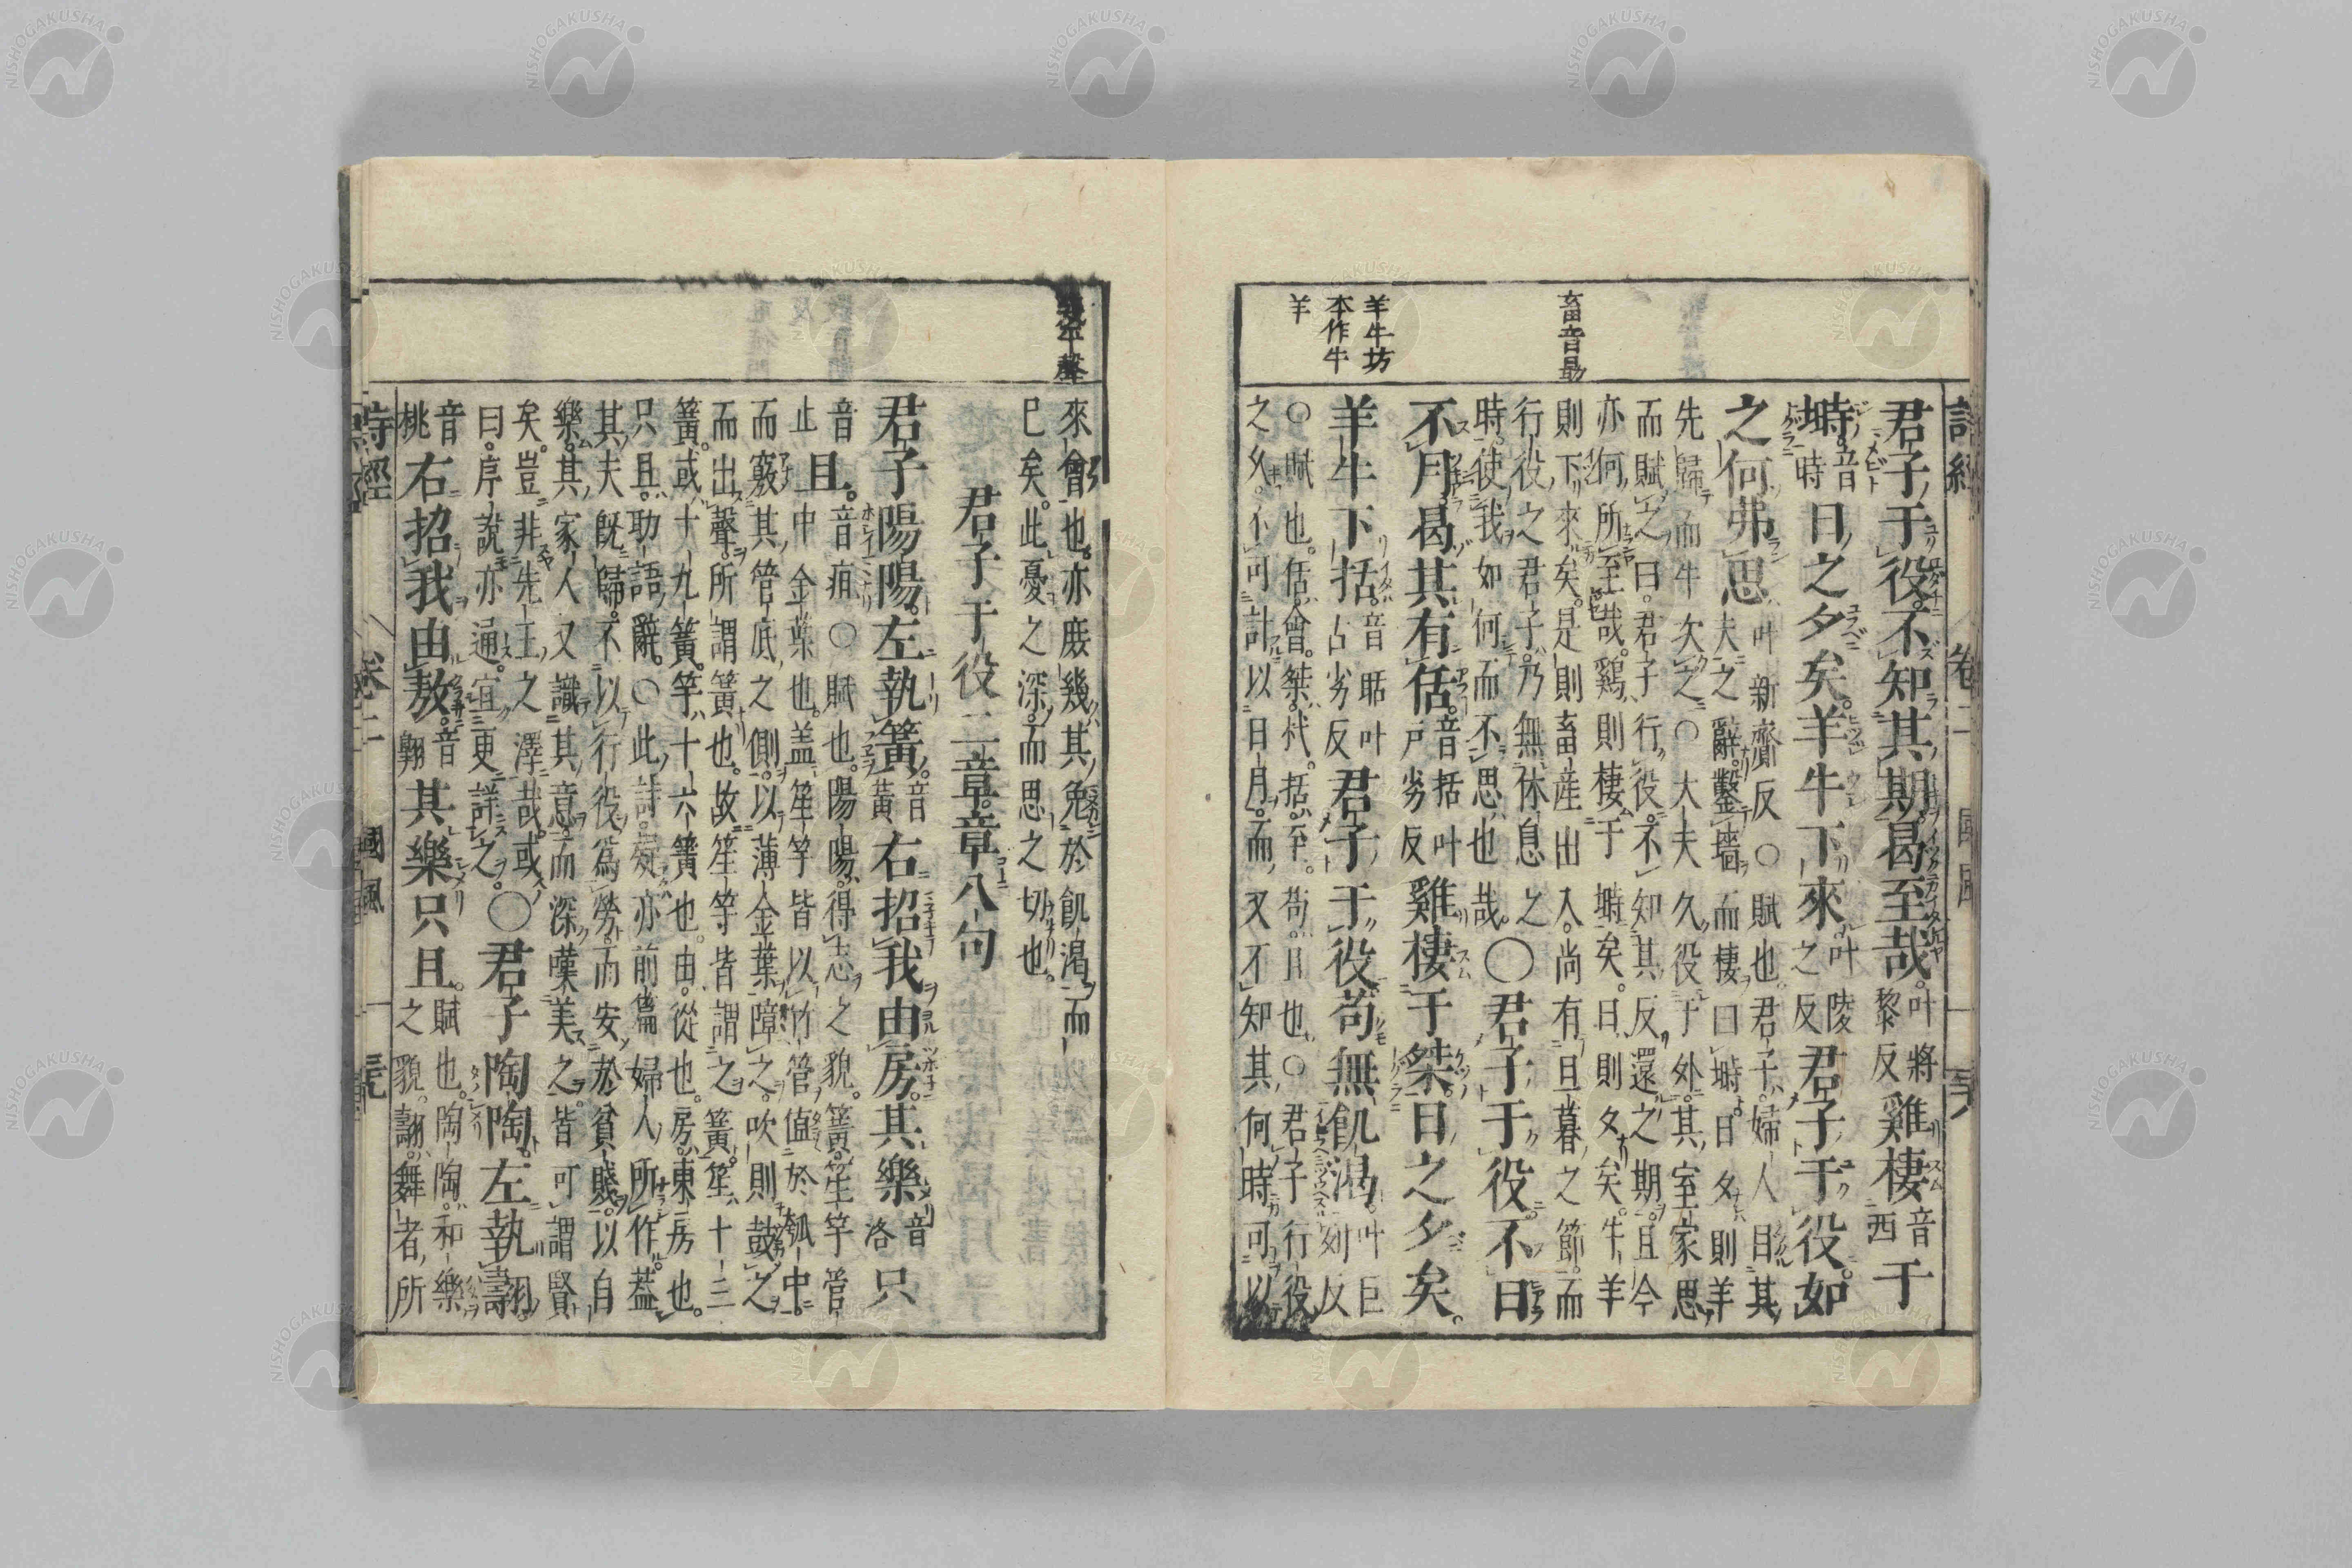 畜音旭
羊牛坊
本作牛
羊
君子于役。不知其期。曷至哉。叶將黎反雞棲音西于
塒。音時日之夕矣。羊牛下來。叶陵之反君子于役。如
之何弗思叶新齎反○賦也。君子。婦人目其
夫之辭。鑿墻而棲曰塒。日夕則羊
先歸而牛次之○大夫久役于外。其室家思
而賦之曰。君子行役。不知其反還之期。且今
亦何所至哉。鷄則棲于塒矣。日則夕矣。牛羊
則下來矣。是則畜產出入。尚有旦暮之節。而
行役之君子。乃無休息之
時。使我如何而不思也哉。○君子于役。不日
不月。曷其有佸。音括叶戶劣反雞棲于桀。日之夕矣。
羊牛下括。音聒叶古劣反君子于役。苟無飢渴。叶巨列反
○賦也。佸。會。桀。杙。括。至。苟。且也。○君子行役
之久。不可計以日月。而又不知其何時可以
來會也。亦庶幾其免於飢渴而
已矣。此憂之深。而思之切也。
君子于役二章章八句
君子陽陽。左執簧。音黃右招我由房。其樂音洛只
且。音疽○賦也。陽陽。得志之貌。簧。笙竽管
止中金葉也。盖笙竽皆以竹管植於匏中。
而竅其管底之側。以薄金葉障之。吹則鼓之
而出聲。所謂簧也。故笙竽皆謂之簧。笙十三
簧。或十九簧。竽十六簧也。由。從也。房。東房也。
只且。助語辭。○此詩疑亦前篇婦人所作。葢
其夫旣歸。不以行役爲勞。而安於貧賤。以自
樂。其家人又識其意。而深嘆美之。皆可謂賢
矣。豈非先王之澤哉。或
曰。序說亦通。宜更詳之。○君子陶陶。左執翿。
音桃右招我由敖。音翺其樂只且。賦也。陶陶。和樂
之貌。翿。舞者所
詩經
卷二
國風